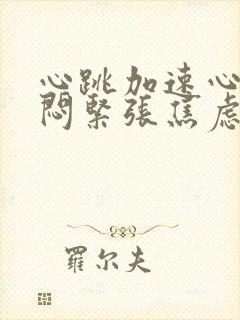 心跳加速心
悶緊張焦慮
羅尔夫